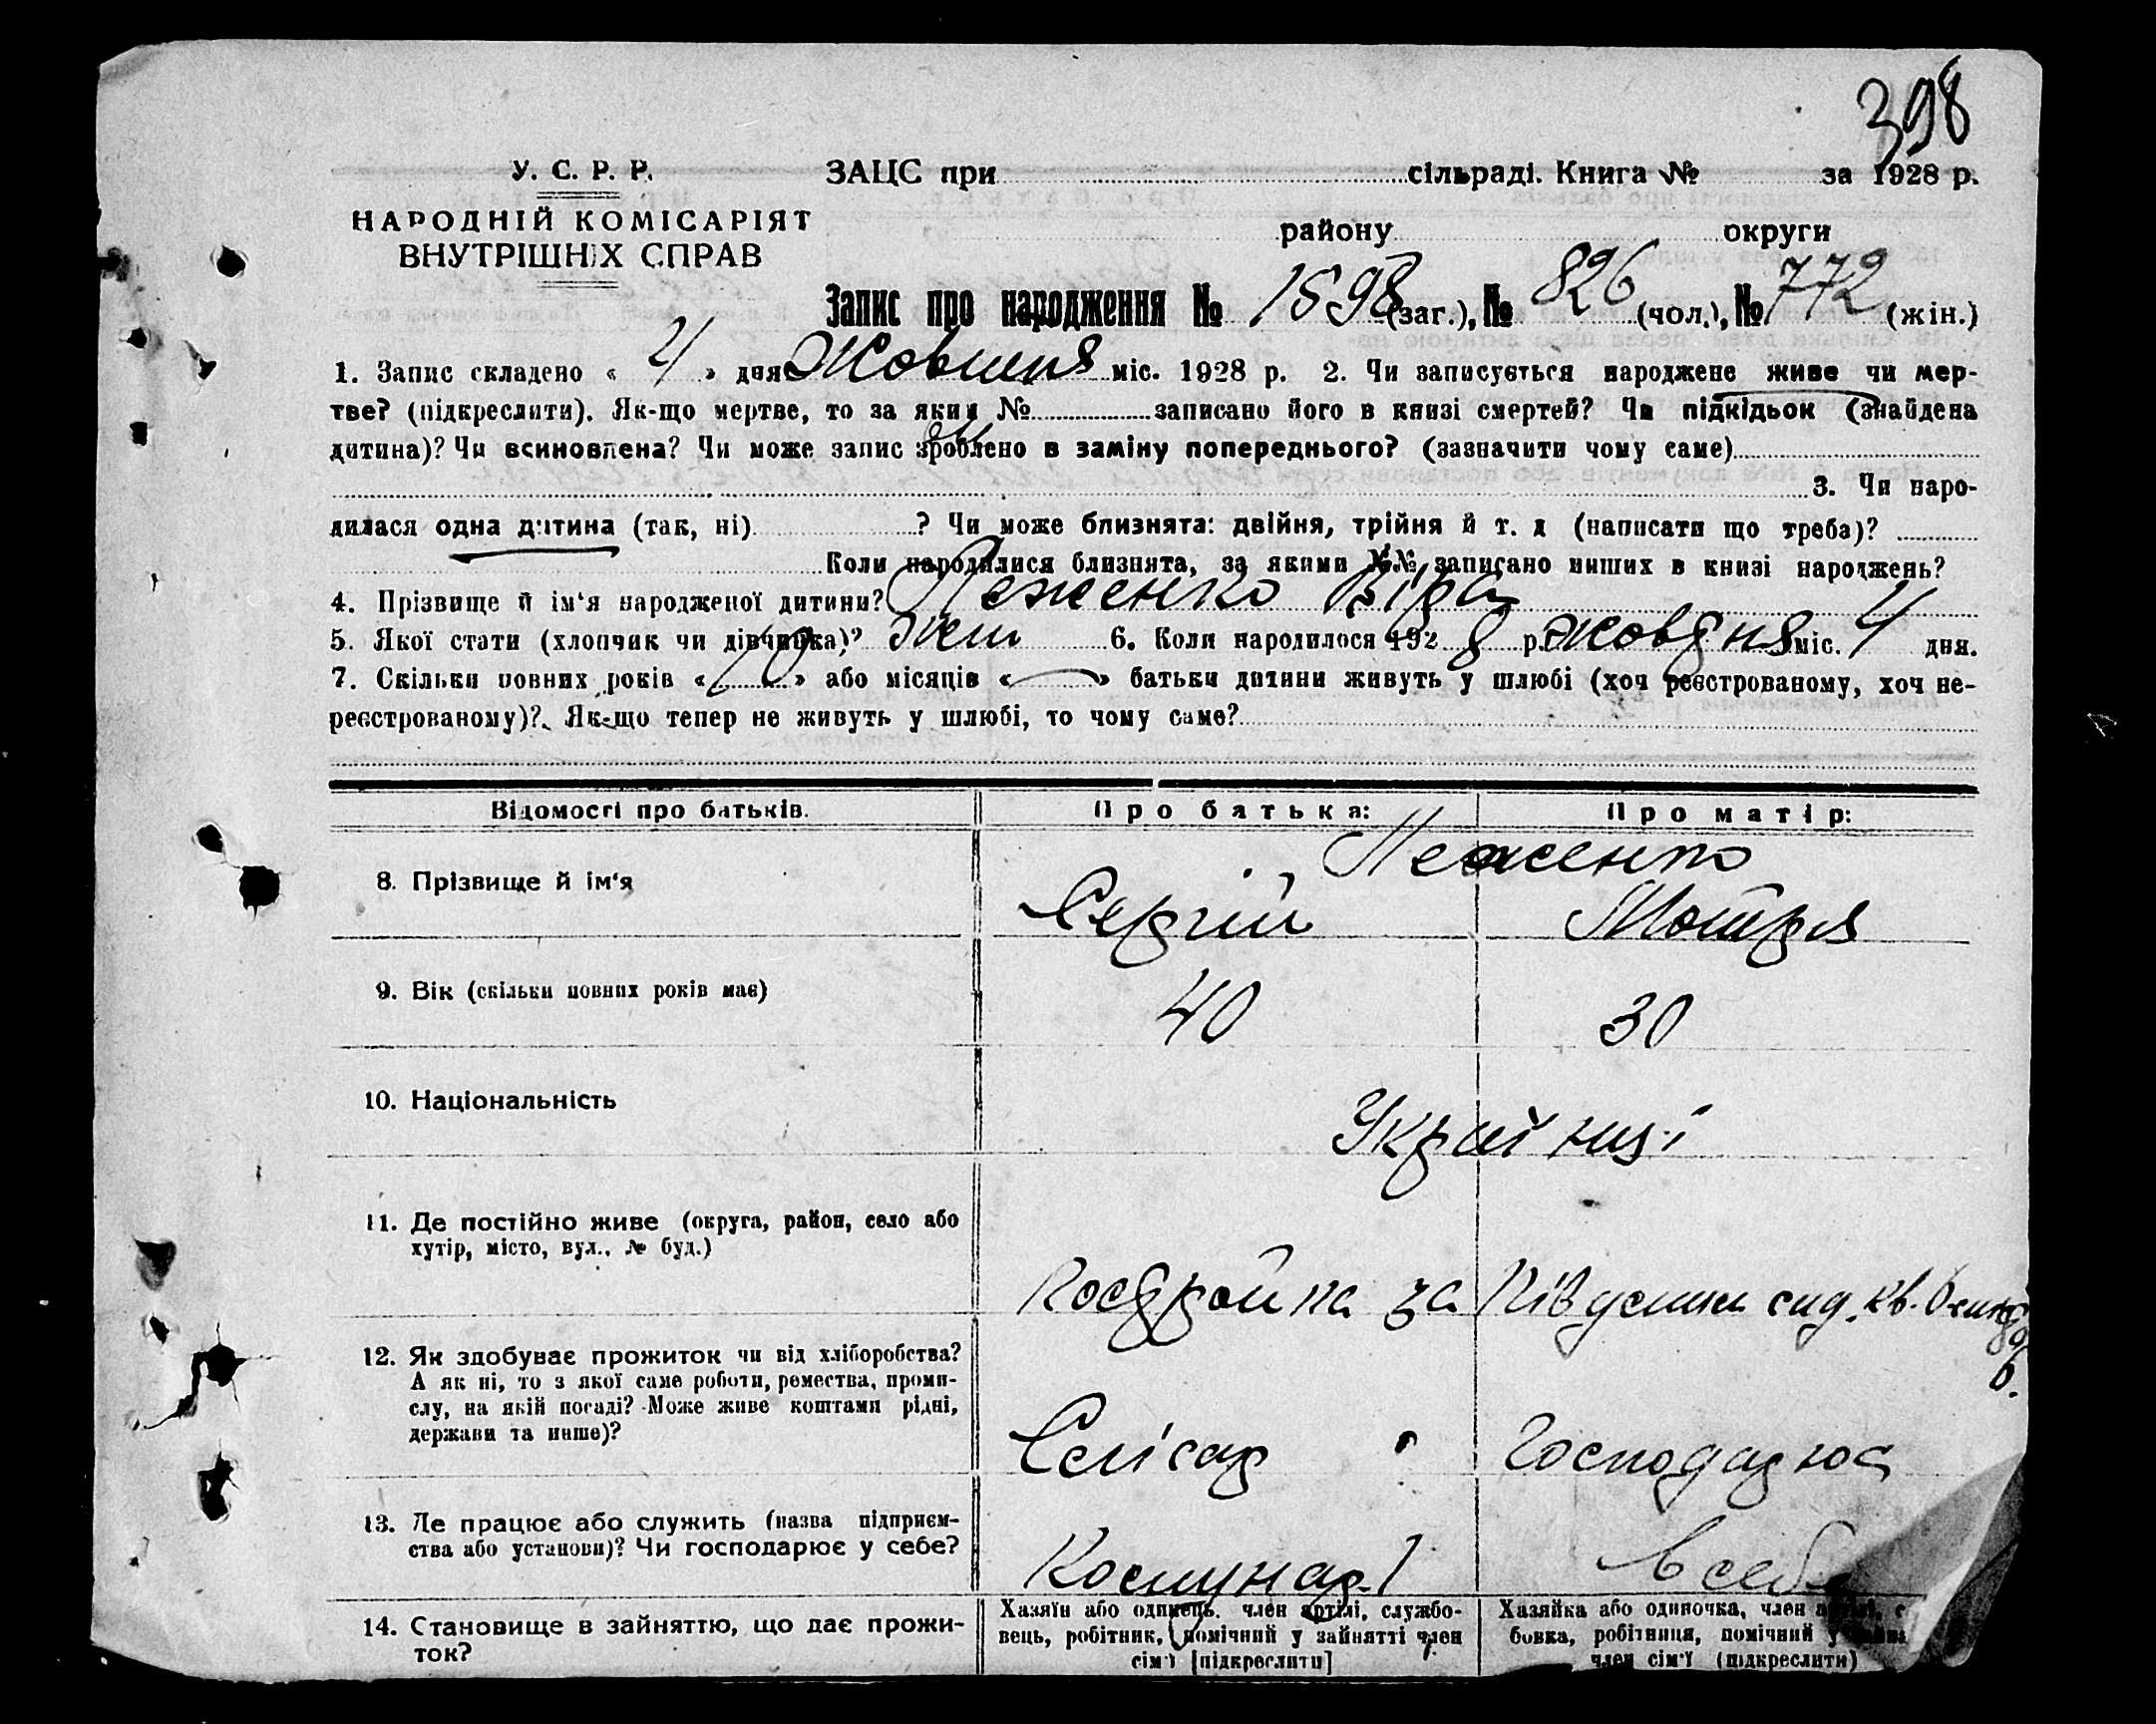 398
У. С. Р. Р.
НАРОДНІЙ КОМІСАРІЯТ
ВНУТРІШНІХ СПРАВ
ЗАЦС при сільраді. Книга № за 1928 р.
району округи
Запис про народження № 1598 (заг.), № 826 (чол.), № 772 (жін.)
1. Запис складено « 4 » дня Жовтня міс. 1928 р. 2. Чи записується народжене живе чи мер-
тве? (підкреслити). Як-що мертве, то за яким № записано його в книзі смертей? Чи підкідьок (знайдена
дитина)? Чи всиновлена? Чи може запис зроблено в заміну попереднього? (зазначити чому саме)
3. Чи наро-
дилася одна дитина (так, ні) ? Чи може близнята: двійня, трійня й т. д (написати що треба)?
Коли народилися близнята, за якими №№ записано инших в книзі народжень?
4. Прізвище й ім‘я народженої дитини? Леженко Віра
5. Якої стати (хлопчик чи дівчинка)? жін 6. Коли народилося 1928 р. жовдня міс. 4 дня.
7. Скільки повних років « 10 » або місяців « » батьки дитини живуть у шлюбі (хоч реєстрованому, хоч не-
реєстрованому)? Як-що тепер не живуть у шлюбі, то чому саме?
Відомості про батьків. Про батька: Про матір:
8. Прізвище й ім‘я
Леженко
Сергій Мотря
9. Вік (скільки повних років має)
40 30
10. Національність
Українці
11. Де постійно живе (округа, район, село або
хутір, місто, вул., № буд.)
за
12. Як здобуває прожиток чи від хліборобства?
А як ні, то з якої саме роботи, ремества, проми-
слу, на якій посаді? Може живе коштами рідні,
держави та инше)?
Слісар Господарює
13. Де працює або служить (назва підприєм-
ства або установи)? Чи господарює у себе?
Комунар. в себе
14. Становище в зайняттю, що дає прожи-
ток?
Хазяїн або одинець, член артілі, службо-
вець, робітник, помічний у зайнятті член
сім‘ї [підкреслити]
Хазяйка або одиночка, член
бовка, робітниця, помічний у
член сім‘ї (підкреслити)